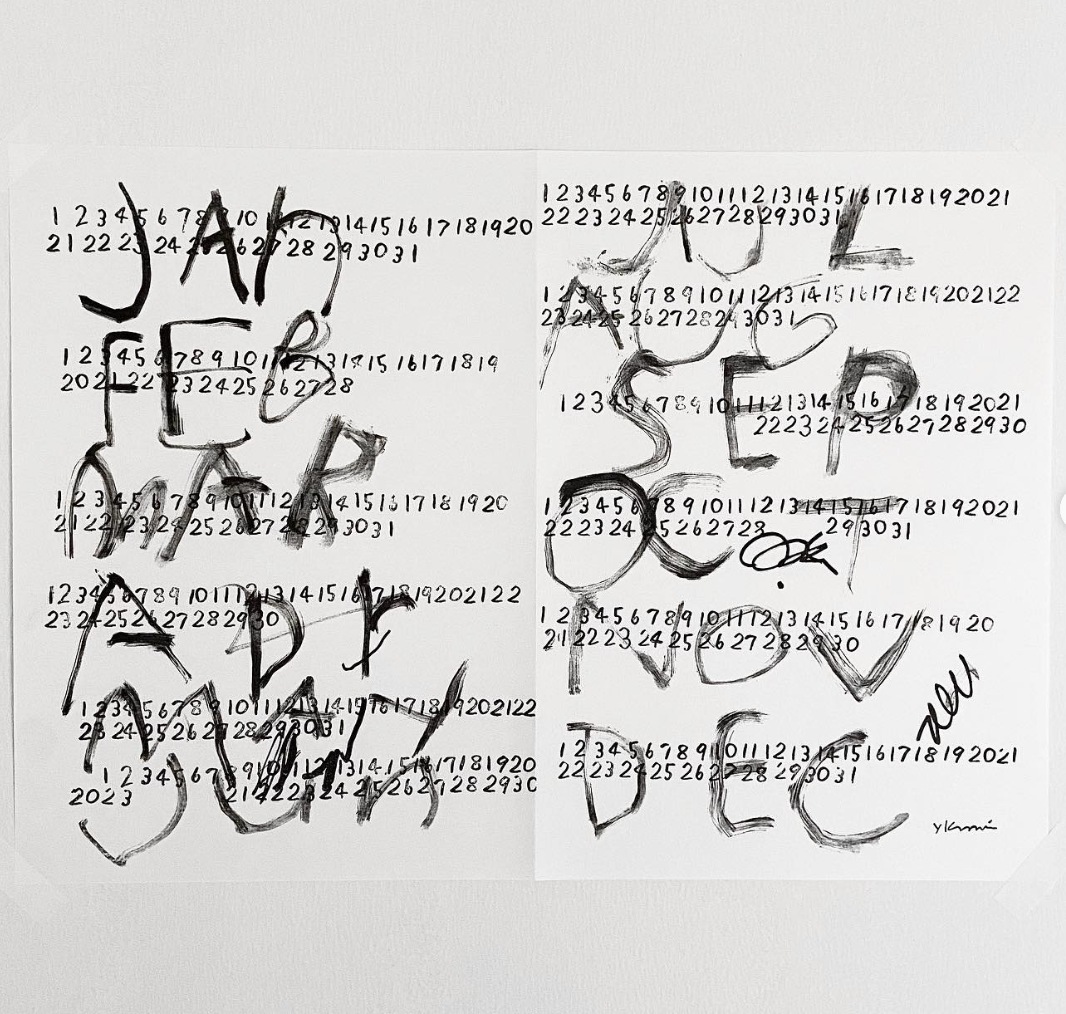 JAn
1 2 3 4 5 6 7 8 9 10 11 12 13 14 15 16 17 18 19 20
21 22 23 24 25 26 27 28 29 30 31
FEB
1 2 3 4 5 6 7 8 9 10 11 12 13 14 15 16 17 18 19
20 21 22 23 24 25 26 27 28
MAR
1 2 3 4 5 6 7 8 9 10 11 12 13 14 15 16 17 18 19 20
21 22 23 24 25 26 27 28 29 30 31
APr
1 2 3 4 5 6 7 8 9 10 11 12 13 14 15 16 17 18 19 20 21 22
23 24 25 26 27 28 29 30
MAY
1 2 3 4 5 6 7 8 9 10 11 12 13 14 15 16 17 18 19 20 21 22
23 24 25 26 27 28 29 30 31
JUn
1 2 3 4 5 6 7 8 9 10 11 12 13 14 15 16 17 18 19 20
2023 21 22 23 24 25 26 27 28 29 30
JUL
1 2 3 4 5 6 7 8 9 10 11 12 13 14 15 16 17 18 19 20 21
22 23 24 25 26 27 28 29 30 31
AUG
1 2 3 4 5 6 7 8 9 10 11 12 13 14 15 16 17 18 19 20 21 22
23 24 25 26 27 28 29 30 31
SEP
1 2 3 4 5 6 7 8 9 10 11 12 13 14 15 16 17 18 19 20 21
22 23 24 25 26 27 28 29 30
OCT
1 2 3 4 5 6 7 8 9 10 11 12 13 14 15 16 17 18 19 20 21
22 23 24 25 26 27 28 29 30 31
NOV
1 2 3 4 5 6 7 8 9 10 11 12 13 14 15 16 17 18 19 20
21 22 23 24 25 26 27 28 29 30
DEC
1 2 3 4 5 6 7 8 9 10 11 12 13 14 15 16 17 18 19 20 21
22 23 24 25 26 27 28 29 30 31